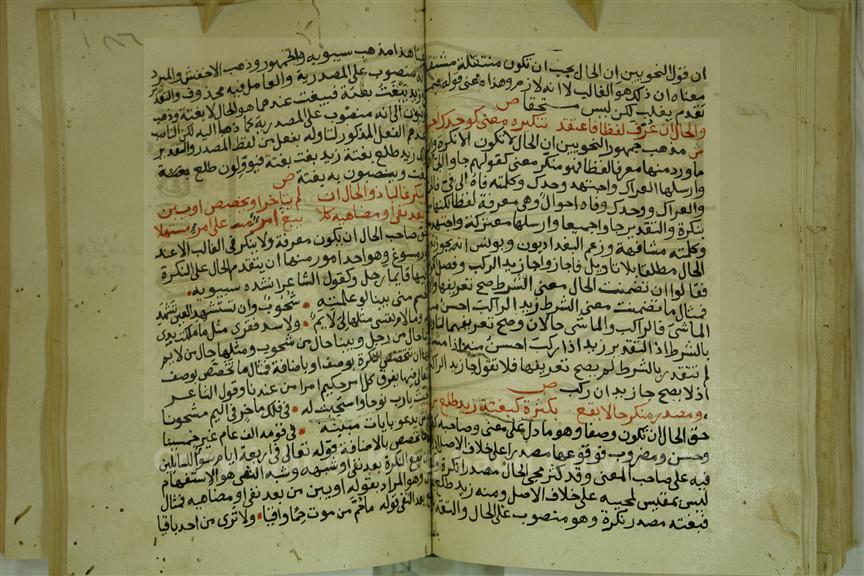 ان قول النحويين ان الحال يجب ان تكون منتقلة مشتقة
معناه ان ذلك هو الغالب لا انه لازم وهذا معنى قوله فيما
تقدم يغلب لكن ليس مستحقا ص
والحال ان عرف لفظا فاعتقد تنكيره معنى كوحدك اجتهد
ش مذهب جمهور النحويين ان الحال لا تكون الا نكرة وان
ما ورد منها معرفا لفظا فهو منكر معنى كقولهم جاوا الجما
وارسلها العراك واجتهد وحدك وكلمته فاه الى في
والعراك ووحدك وفاه احوال وهي معرفة لفظا لكنها
بنكرة والتقدير جاوا جميعا وارسلها معتركة واجتهد
وكلمته مشافهة وزعم البغداديون ويونس انه يجوز
الحال مطلقا بلا تاويل فاجازوا جا زيد الراكب وفصل
فقالوا ان تضمنت الحال معنى الشرط صح تعريفها
فمثال ما تضمنت معنى الشرط زيد الراكب احسن منه
الماشي فالراكب والماشي حالان وصح تعريفهما
بالشرط اذ التقدير زيد اذا ركب احسن منه اذا مشى
لم تتقدر بالشرط لم يصح تعريفها فلا تقول جا زيد الراكب
اذ لا يصح جا زيد ان ركب ص
ومصدر منكر حالا يقع بكثرة كبغتة زيد طلع ش
حق الحال ان تكون وصفا وهو ما دل على معنى وصاحبه
وحسن ومضروب فوقوعها مصدرا على خلاف الاصل
فيه على صاحب المعنى وقد كثر مجي الحال مصدرا نكرة
ليس بمقيس لمجيه على خلاف الاصل ومنه زيد طلع
فبغتة مصدر نكرة وهو منصوب على الحال والتقدير
هذا مذهب سيبويه والجمهور وذهب الاخفش والمبرد
منصوب على المصدرية والعامل فيه محذوف والتقدير
زيد يبغت بغتة فيبغت عندهما هو الحال لا بغتة وذهب
الكوفيون الى انه منصوب على المصدرية كما ذهبا اليه لكن الناصب
عندهم الفعل المذكور لتاوله بفعل من لفظ المصدر والتقدير
زيد طلع بغتة زيد بغت بغتة فيؤولون طلع ببغت
وينصبون به بغتة ص
ولم ينكر غالبا ذو الحال ان لم يتاخر او يخصص او يبن
من بعد نفي او مضاهيه كلا يبغ امرؤ على امرئ مستسهلا
حق صاحب الحال ان يكون معرفة ولا ينكر في الغالب الا عند
مسوغ وهو احد امور منها ان يتقدم الحال على النكرة
فيها قايما رجل وكقول الشاعر انشده سيبويه
وبالجسم مني بينا لو علمته • شحوب وان تستشهدي العين تشهد
وما لام نفسي مثلها لي لايم • ولا سد فقري مثل ما ملكت يدي
حال من رجل وبينا حال من شحوب ومثلها حال من لايم
ان تخصص النكرة بوصف او باضافة فمثال ما تخصص بوصف
فيها يفرق كل امر حكيم امرا من عندنا وقول الشاعر
نجيت يا رب نوحا واستجبت له • في فلك ماخر في اليم مشحونا
يدعو بايات مبينة • في قومه الف عام غير خمسينا
تخصص بالاضافة قوله تعالى في اربعة ايام سواء للسائلين
تقع النكرة بعد نفي او شبهه وشبه النفي هو الاستفهام
وهو المراد بقوله او يبن من بعد نفي او مضاهيه فمثال
بعد النفي قوله ما حم من موت حما واقيا • ولا ترى من احد باقيا